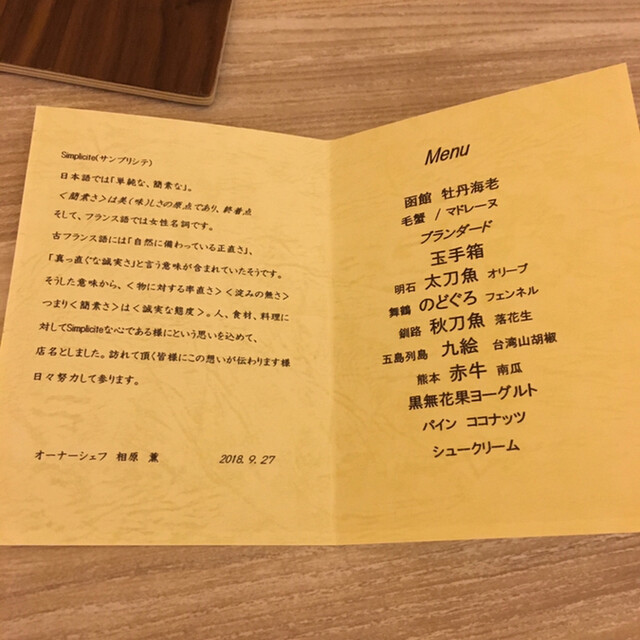 Simplicite(サンプリシテ)
日本語では「単純な、簡素な」。
＜簡素さ＞は美(味)しさの原点であり、終着点
そして、フランス語では女性名詞です。
古フランス語には「自然に備わっている正直さ」、
「真っ直ぐな誠実さ」と言う意味が含まれていたそうです。
そうした意味から、＜物に対する率直さ＞＜淀みの無さ＞
つまり＜簡素さ＞は＜誠実な態度＞。人、食材、料理に
対してSimpliciteな心である様にという思いを込めて、
店名としました。訪れて頂く皆様にこの想いが伝わります様
日々努力して参ります。
オーナーシェフ 相原 薫 2018.9.27
Menu
函館 牡丹海老
毛蟹 / マドレーヌ
ブランダード
玉手箱
明石 太刀魚 オリーブ
舞鶴 のどぐろ フェンネル
釧路 秋刀魚 落花生
五島列島 九絵 台湾山胡椒
熊本 赤牛 南瓜
黒無花果ヨーグルト
パイン ココナッツ
シュークリーム